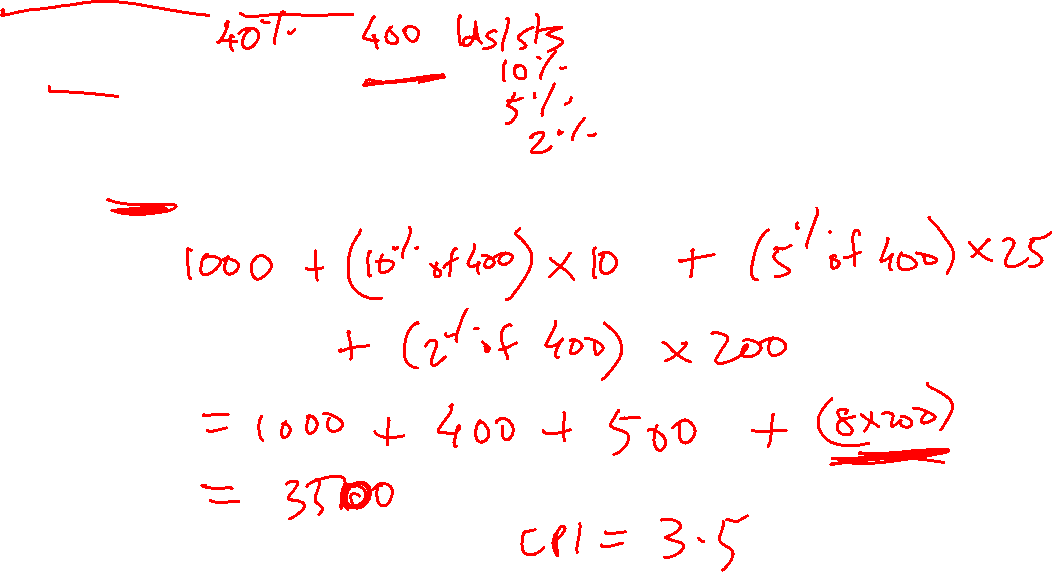 40% 400 lds/sts
10%
5%
2%
1000 + (10% of 400) × 10 + (5% of 400) × 25
+ (2% of 400) × 200
= 1000 + 400 + 500 + (8×200)
= 3500
CPI = 3.5